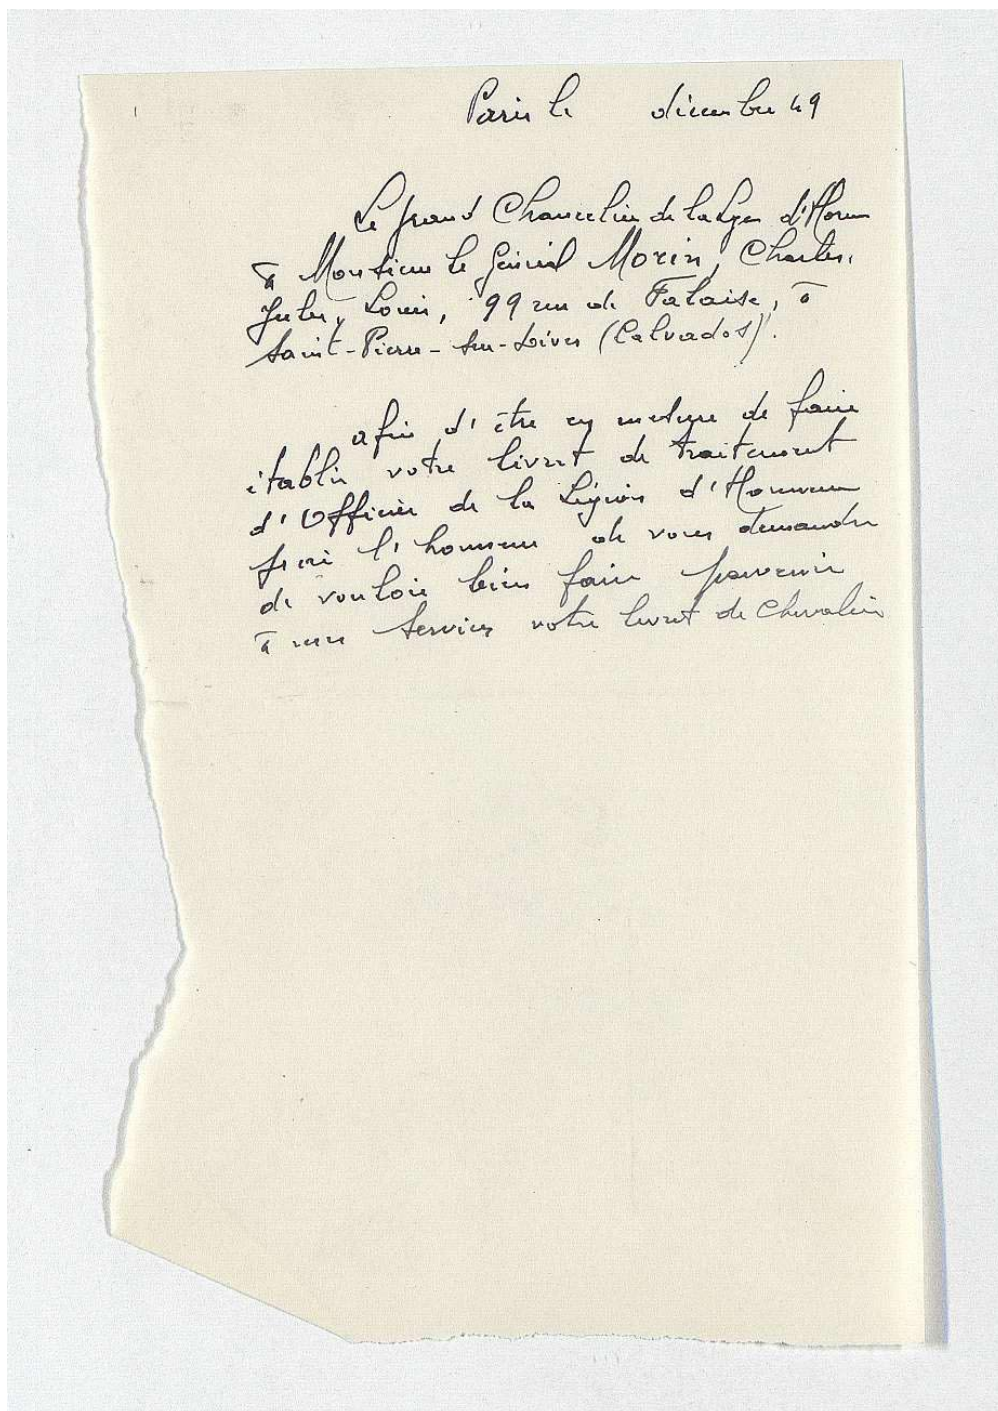 Paris le décembre 49
Le Grand Chancelier de la Légion d'Honneur
à Monsieur le Général Morin, Charles,
Jules, Louis, 99 rue de Falaise, à
Saint-Pierre-sur-Dives (Calvados).
afin d'être en mesure de faire
établir votre livret de traitement
d'Officier de la Légion d'Honneur
j'ai l'honneur de vous demander
de vouloir bien faire parvenir
à mes services votre livret de Chevalier